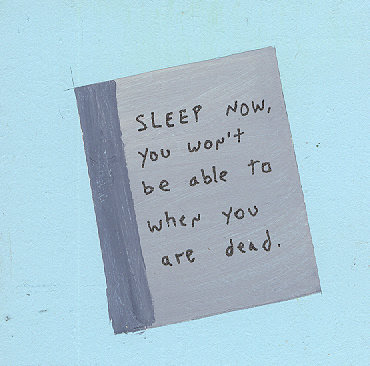 SLEEP NOW,
you won't
be able to
when you
are dead.